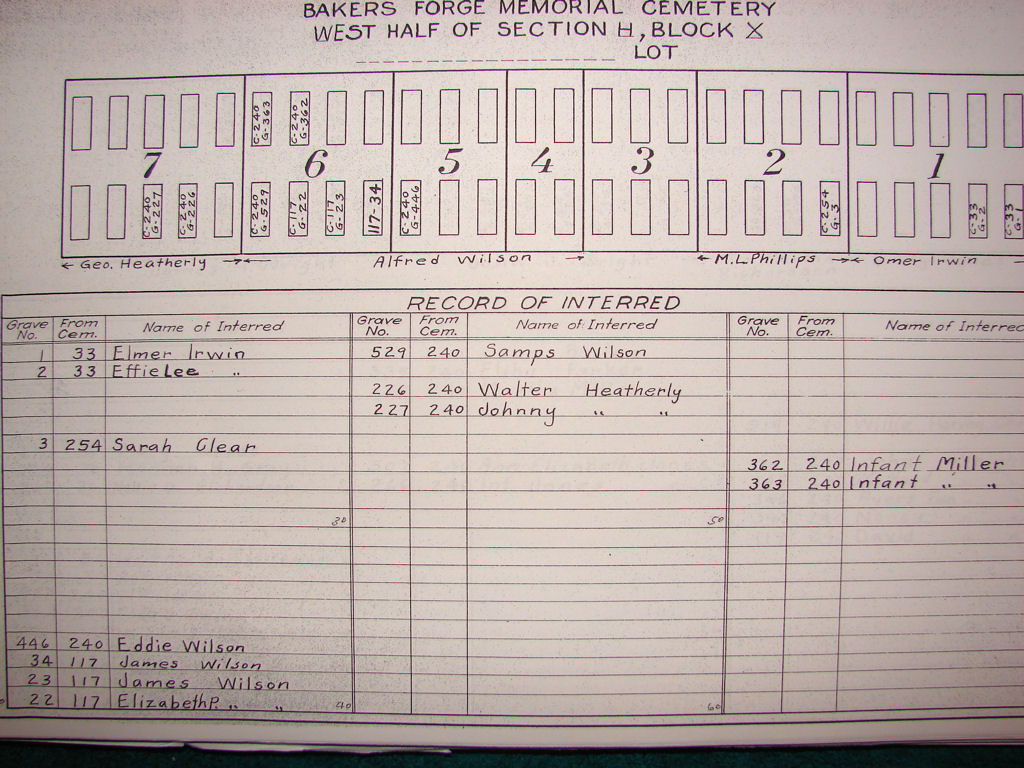 BAKERS FORGE MEMORIAL CEMETERY
WEST HALF OF SECTION H, BLOCK X
LOT
C-240 G-363 C-240 G-362
7 6 5 4 3 2 1
C-240 G-227 C-240 G-226 C-240 G-529 C-117 G-22 C-117 G-23 117-34 C-240 G-446 C-254 G-3 C-33 G-2 C-33 G-1
Geo. Heatherly Alfred Wilson M.L Phillips Omer Irwin
RECORD OF INTERRED
Grave No. From Cem. Name of Interred Grave No. From Cem. Name of Interred Grave No. From Cem. Name of Interred
1 33 Elmer Irwin 529 240 Samps Wilson
2 33 Effie Lee "
226 240 Walter Heatherly
227 240 Johnny " "
3 254 Sarah Clear
362 240 Infant Miller
363 240 Infant " "
30 50
446 240 Eddie Wilson
34 117 James Wilson
23 117 James Wilson
22 117 Elizabeth P. " " 40 60